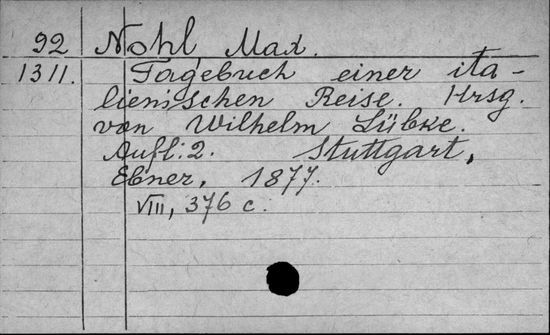 92 Nohl Max.
1311. Tagebuch einer ita-
lienischen Reise. Hrsg.
von Wilhelm Lübke.
Aufl. 2. Stuttgart,
Ebner, 1877.
VIII, 376 c.